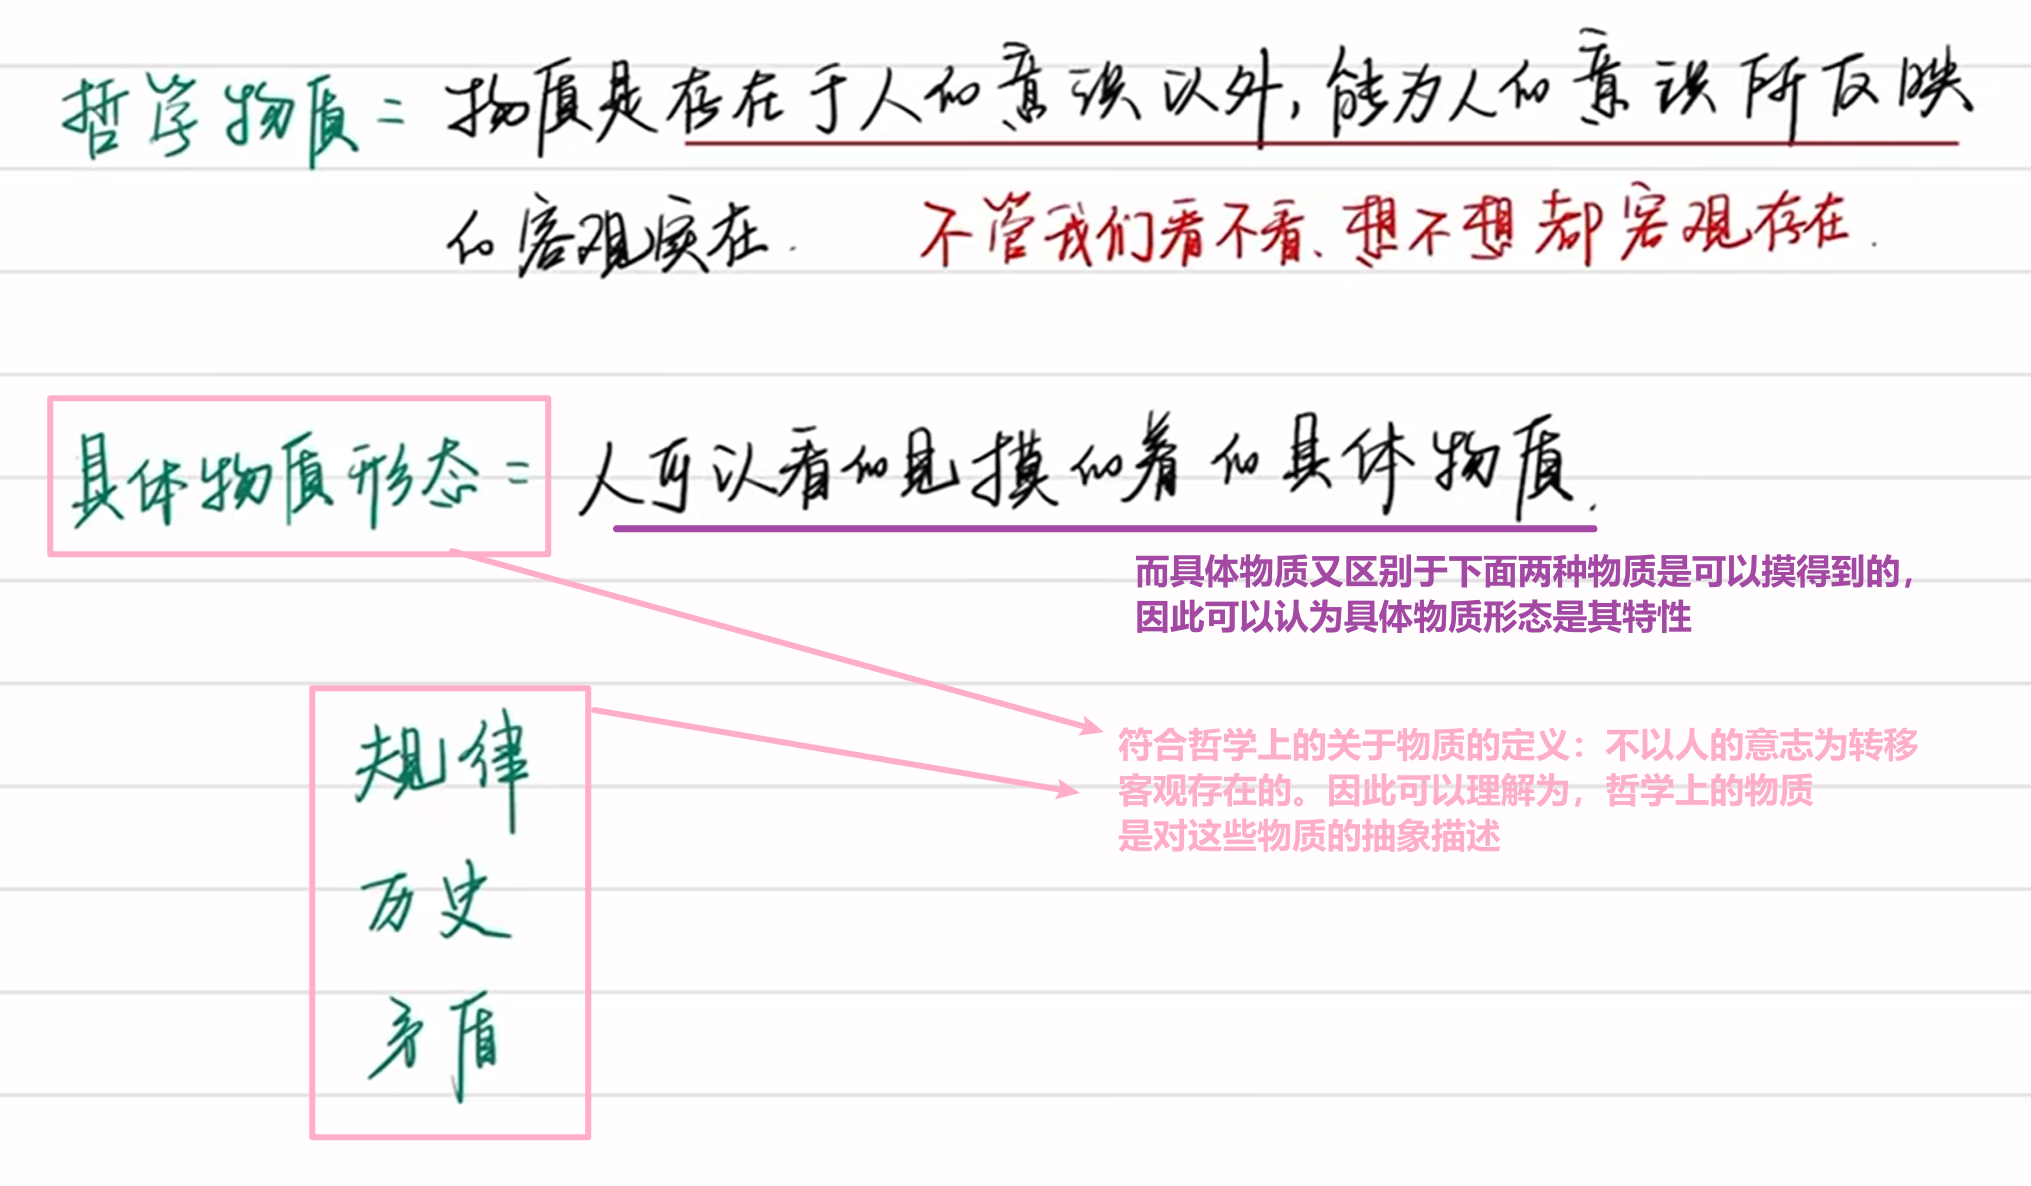 哲学物质 = 物质是存在于人的意识以外，能为人的意识所反映
的客观实在. 不管我们看不看、想不想都客观存在.
具体物质形态 = 人可以看的见摸的着的具体物质.
而具体物质又区别于下面两种物质是可以摸得到的，
因此可以认为具体物质形态是其特性
规律
符合哲学上的关于物质的定义：不以人的意志为转移
客观存在的。因此可以理解为，哲学上的物质
是对这些物质的抽象描述
历史
矛盾